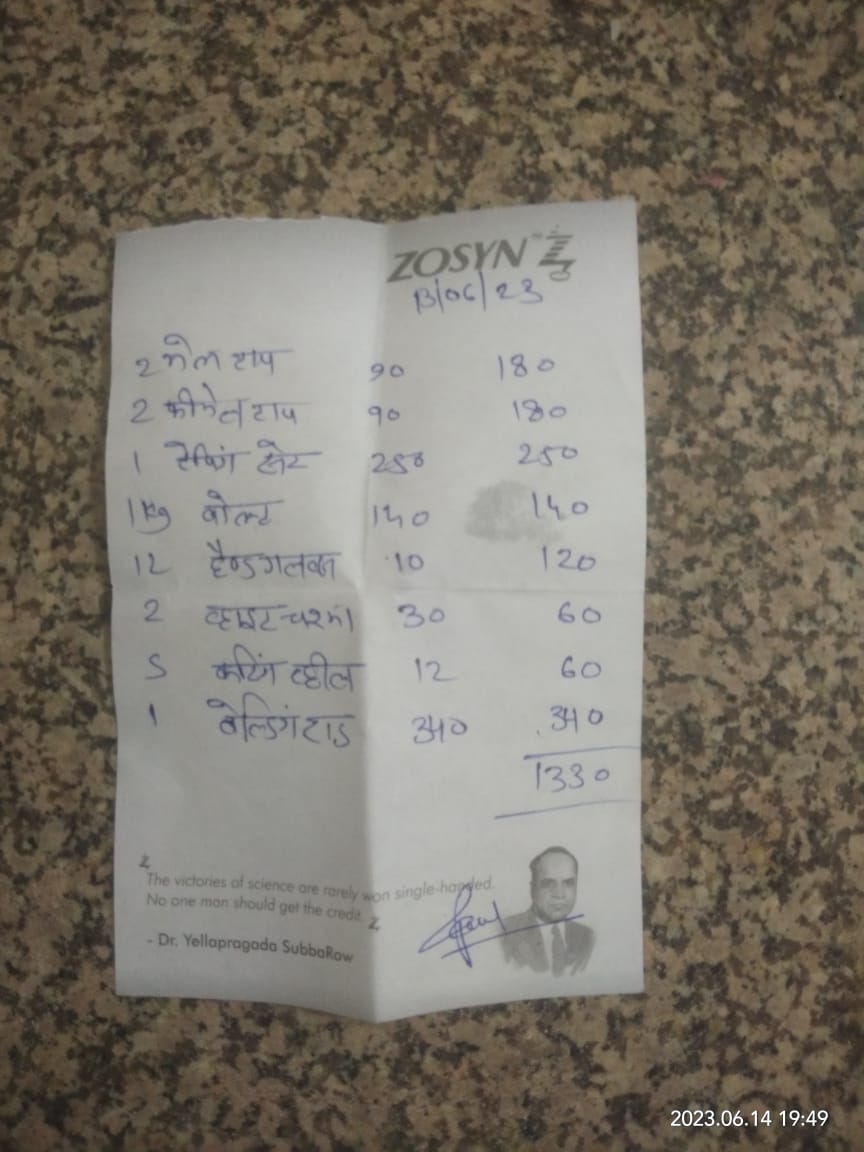 ZOSYN™
13/06/23
2 मेल टाप 90 180
2 फीमेल टाप 90 180
1 250 250
1 kg बोल्ट 140 140
12 हैण्डगलब्स 10 120
2 व्हाइट चश्मा 30 60
5 कटिंग व्हील 12 60
1 वेल्डिंग राड 340 340
1330
The victories of science are rarely won single-handed.
No one man should get the credit.
- Dr. Yellapragada SubbaRow
2023.06.14 19:49